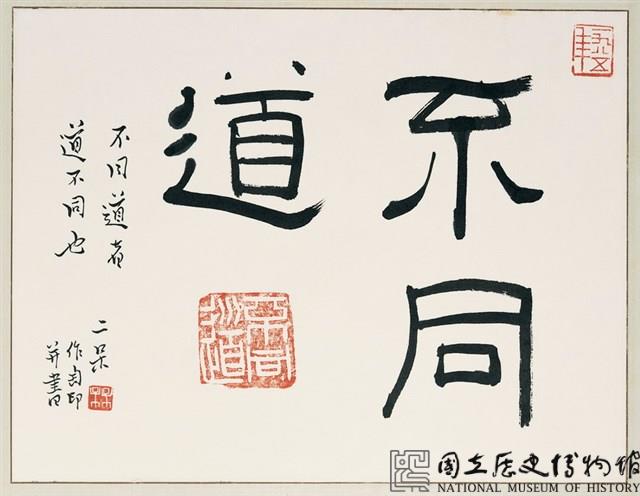 一九八五年
不同
道
不同道
不同道者
道不同也
二呆
作印
并書
國立歷史博物館
NATIONAL MUSEUM OF HISTORY